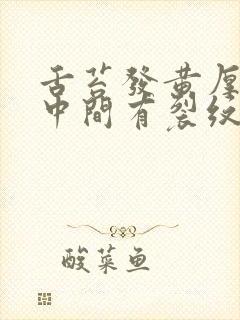 舌苔發黃厚
中間有裂紋
酸菜鱼